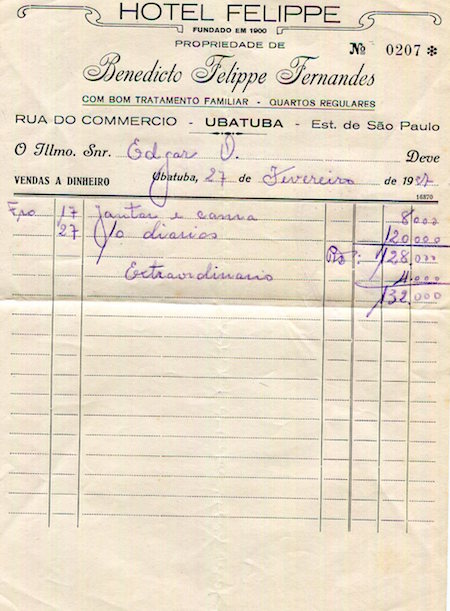 HOTEL FELIPPE
FUNDADO EM 1900
PROPRIEDADE DE
Nº 0207 *
Benedicto Felippe Fernandes
COM BOM TRATAMENTO FAMILIAR - QUARTOS REGULARES
RUA DO COMMERCIO - UBATUBA - Est. de São Paulo
O Illmo. Snr. Edgar O. Deve
VENDAS A DINHEIRO Ubatuba, 27 de Fevereiro de 1937
16870
Fro 17 Jantar e cama 8000
27 diarias 120.000
Rs 128.000
Extraordinario 4.000
132.000